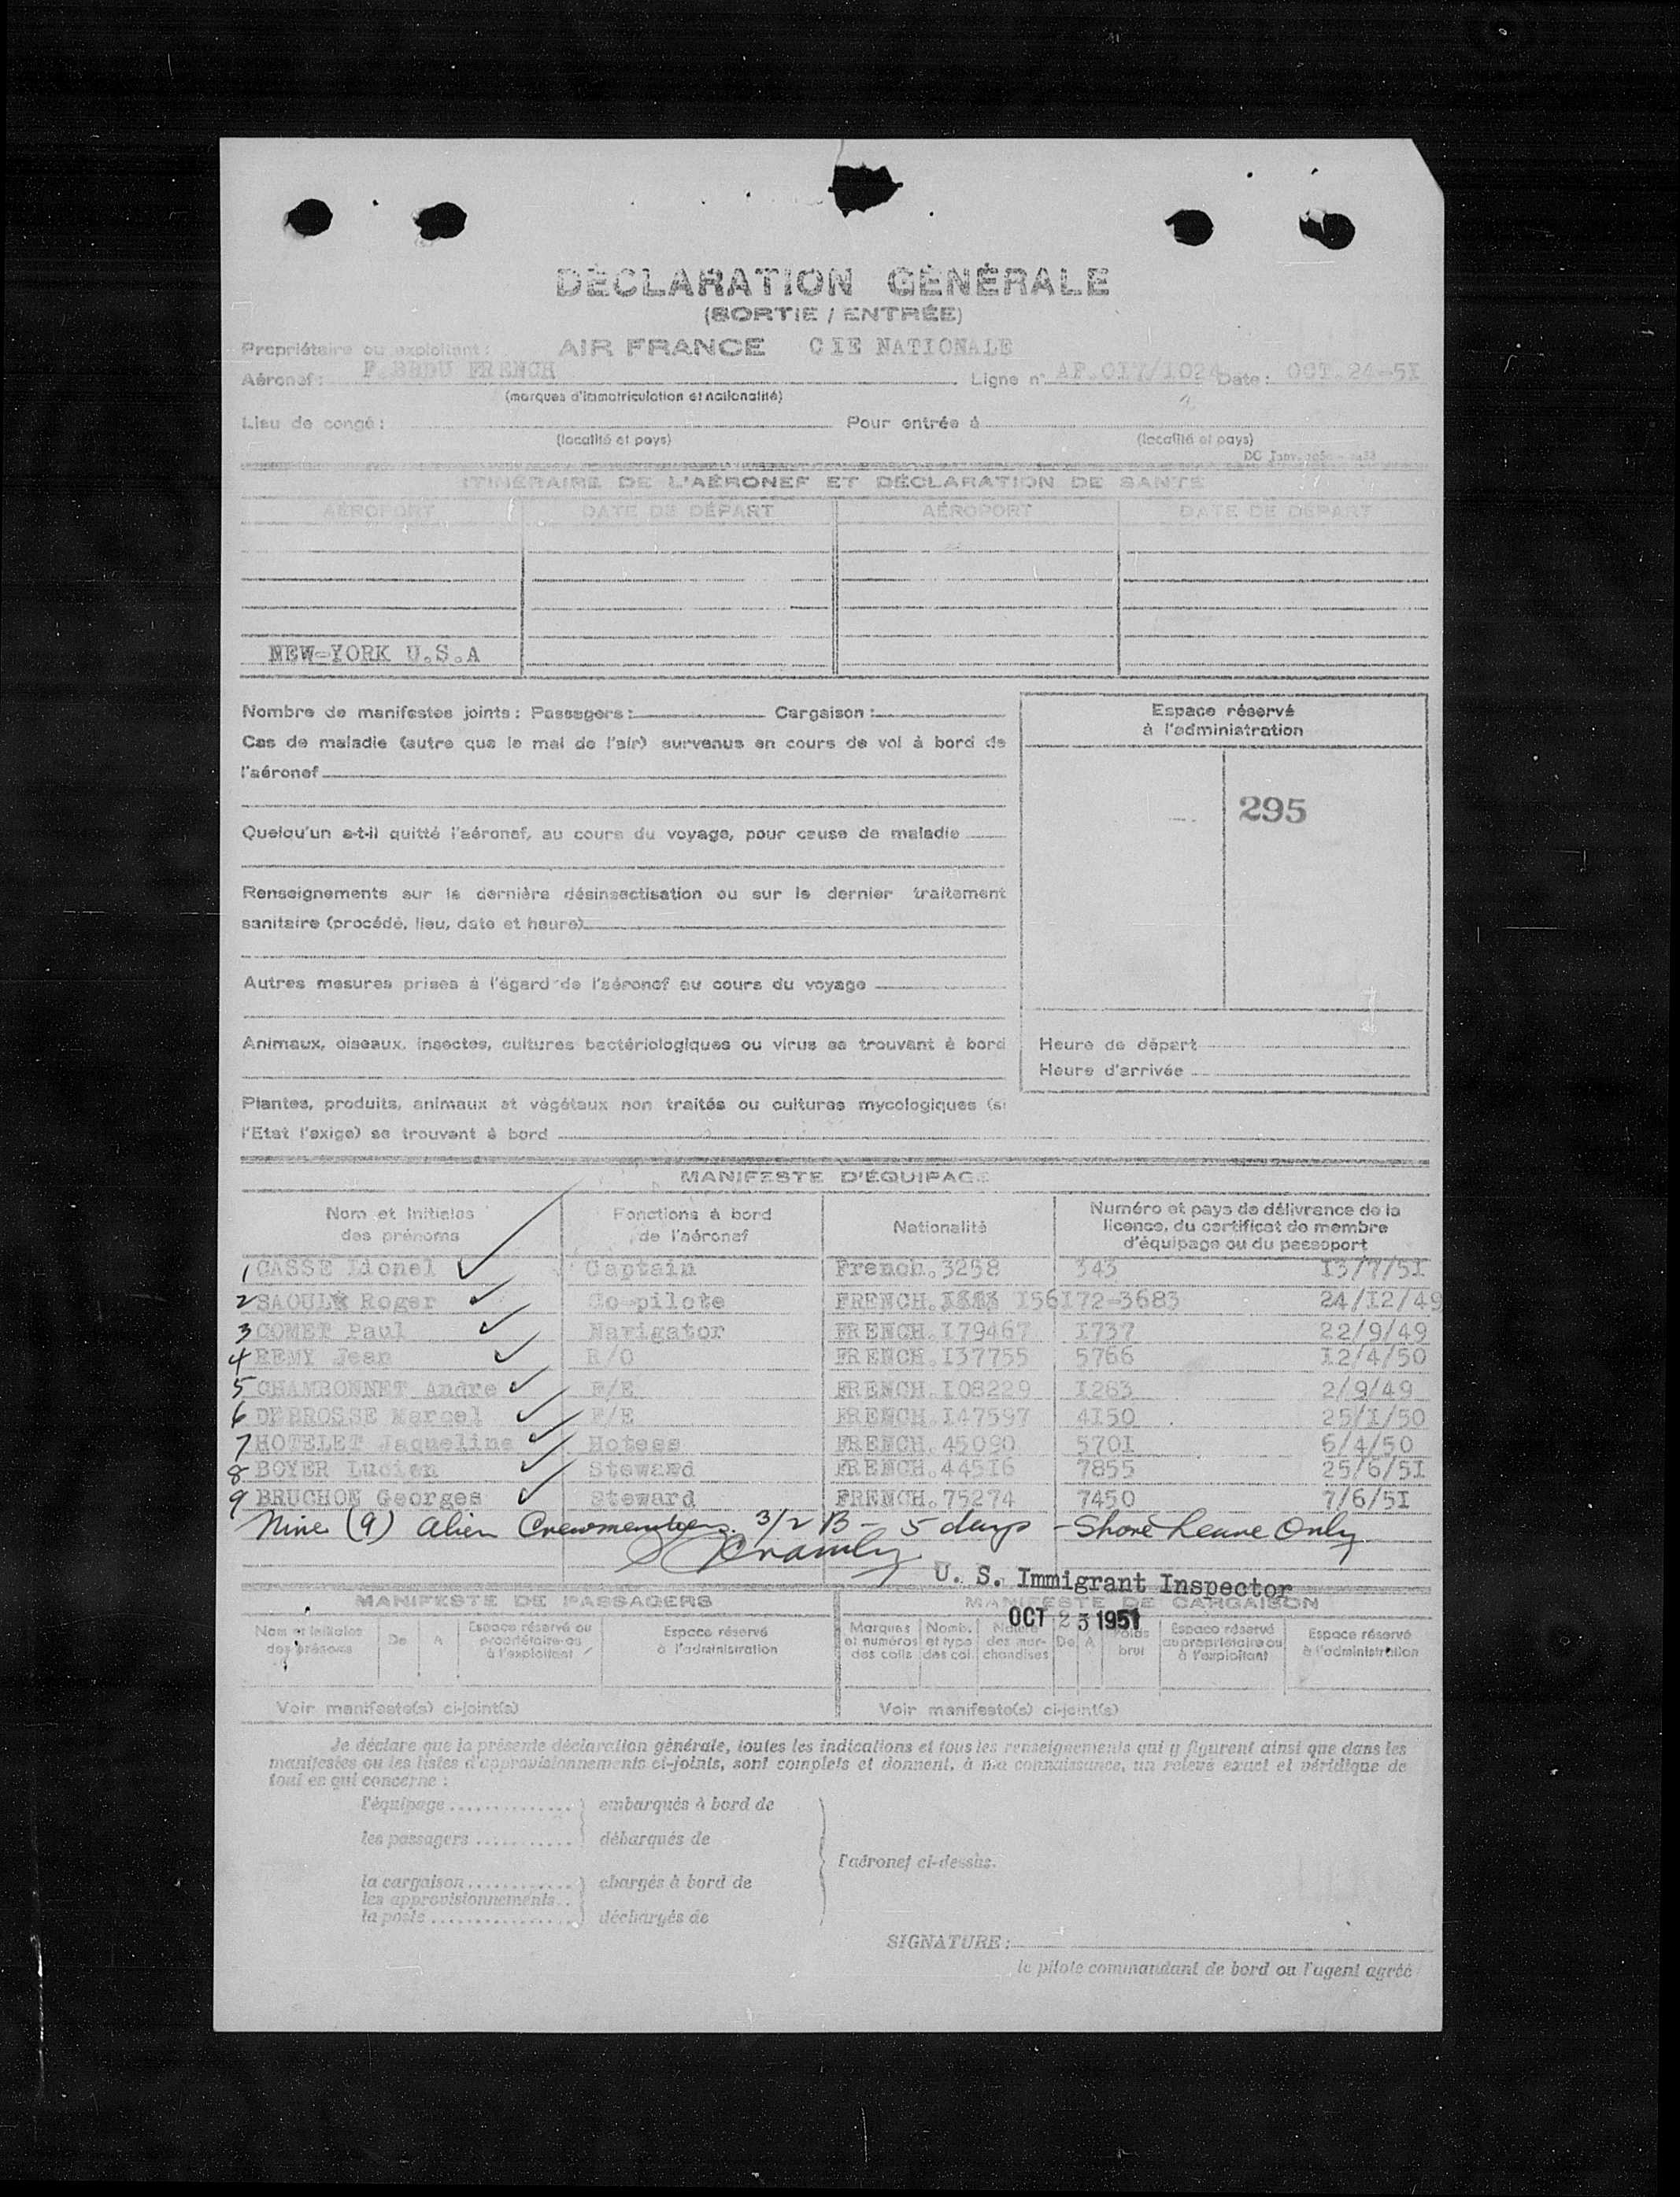 DÉCLARATION GÉNÉRALE
(SORTIE / ENTRÉE)
Propriétaire ou exploitant : AIR FRANCE CIE NATIONALE
Aéronef : F.BBDU FRENCH Ligne n° AF.017/1024 Date : OCT.24-51
(marques d'immatriculation et nationalité)
Lieu de congé : Pour entrée à
(localité et pays) (localité et pays)
ITINÉRAIRE DE L'AÉRONEF ET DÉCLARATION DE SANTÉ
AÉROPORT DATE DE DÉPART AÉROPORT DATE DE DÉPART
NEW-YORK U.S.A
Nombre de manifestes joints : Passagers : Cargaison :
Cas de maladie (autre que le mal de l'air) survenus en cours de vol à bord de
l'aéronef
Quelqu'un a-t-il quitté l'aéronef, au cours du voyage, pour cause de maladie
Renseignements sur la dernière désinsectisation ou sur le dernier traitement
sanitaire (procédé, lieu, date et heure)
Autres mesures prises à l'égard de l'aéronef au cours du voyage
Animaux, oiseaux, insectes, cultures bactériologiques ou virus se trouvant à bord
Plantes, produits, animaux et végétaux non traités ou cultures mycologiques (si
l'Etat l'exige) se trouvant à bord
Espace réservé
à l'administration
295
Heure de départ
Heure d'arrivée
MANIFESTE D'ÉQUIPAGE
Nom et Initiales des prénoms Fonctions à bord de l'aéronef Nationalité Numéro et pays de délivrance de la licence, du certificat de membre d'équipage ou du passeport
1 CASSE Lionel Captain French.3258 343 13/7/51
2 SAOUL Roger Co-pilote FRENCH. 156172-3683 24/12/49
3 COMET Paul Navigator FRENCH.179467 1737 22/9/49
4 REMY Jean R/O FRENCH.137755 5766 12/4/50
5 CHAMBONNET Andre F/E FRENCH.108229 1283 2/9/49
6 DEBROSSE Marcel F/E FRENCH.147597 4150 25/1/50
7 HOTELET Jaqueline Hotess FRENCH.45090 5701 6/4/50
8 BOYER Lucien Steward FRENCH.44516 7855 25/6/51
9 BRUCHON Georges Steward FRENCH.75274 7450 7/6/51
Nine (9) Alien Crewmembers. 3/2 B - 5 days - Shore Leave Only
U. S. Immigrant Inspector
OCT 23 1951
MANIFESTE DE PASSAGERS MANIFESTE DE CARGAISON
Nom et initiales des prénoms De A Espace réservé au propriétaire ou à l'exploitant Espace réservé à l'administration
Marques et numéros des colis Nomb. et type des col. Nature des marchandises De A Poids brut Espace réservé au propriétaire ou à l'exploitant Espace réservé à l'administration
Voir manifeste(s) ci-joint(s) Voir manifeste(s) ci-joint(s)
Je déclare que la présente déclaration générale, toutes les indications et tous les renseignements qui y figurent ainsi que dans les
manifestes ou les listes d'approvisionnements ci-joints, sont complets et donnent, à ma connaissance, un relevé exact et véridique de
tout ce qui concerne :
l'équipage .............. embarqués à bord de
les passagers ........... débarqués de
l'aéronef ci-dessus.
la cargaison ............ chargés à bord de
les approvisionnements ..
la poste ................ déchargés de
SIGNATURE :
le pilote commandant de bord ou l'agent agréé